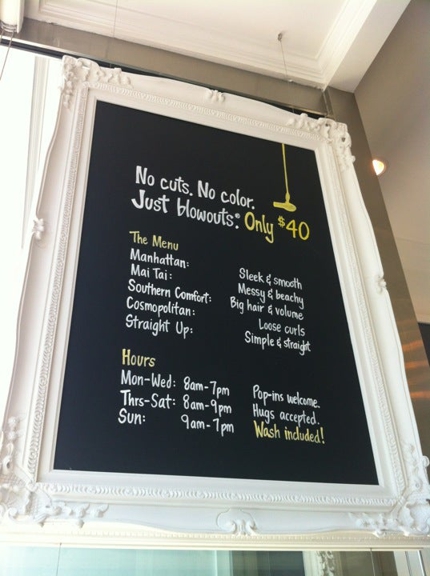 No cuts. No color.
Just blowouts.® Only $40
The Menu
Manhattan: Sleek & smooth
Mai Tai: Messy & beachy
Southern Comfort: Big hair & volume
Cosmopolitan: Loose curls
Straight Up: Simple & straight
Hours
Mon-Wed: 8am-7pm
Thrs-Sat: 8am-9pm
Sun: 9am-7pm
Pop-ins welcome.
Hugs accepted.
Wash included!